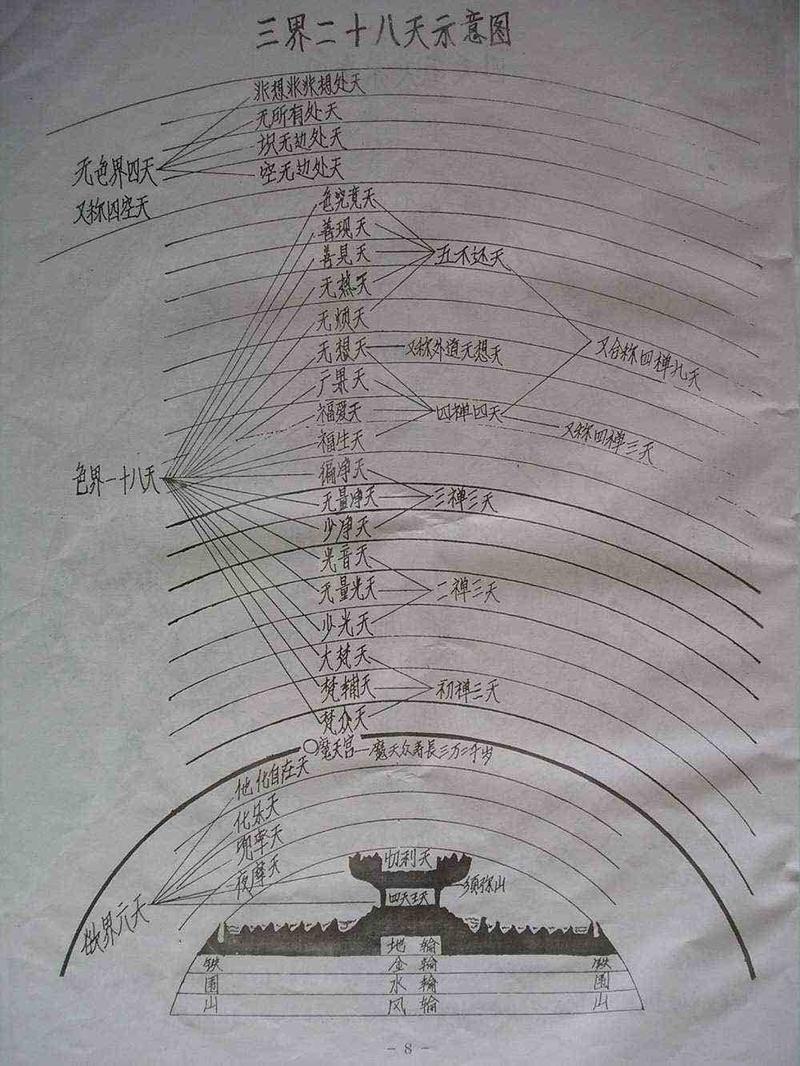 三界二十八天示意图
非想非非想处天
无所有处天
识无边处天
空无边处天
无色界四天
又称四空天
色究竟天
善现天
善見天
五不还天
无热天
无烦天
无想天
又称外道无想天
又合称四禅九天
广果天
福爱天
四禅四天
又称四禅三天
福生天
色界一十八天
徧净天
无量净天
三禅三天
少净天
光音天
无量光天
二禅三天
少光天
大梵天
梵辅天
初禅三天
梵众天
魔天宫—魔天众寿長三万二千岁
他化自在天
化乐天
兜率天
夜摩天
忉利天
须弥山
四天王天
欲界六天
地輪
铁 金輪 铁
围 水輪 围
山 风輪 山
- 8 -